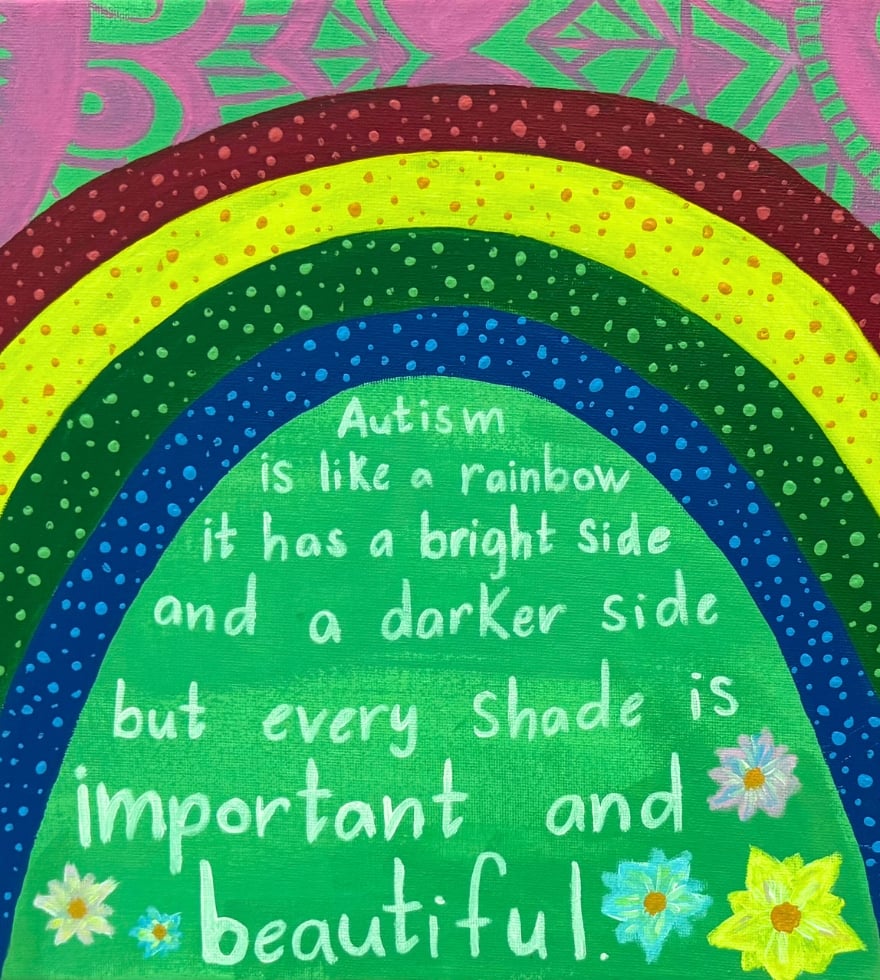 Autism
is like a rainbow
it has a bright side
and a darker side
but every shade is
important and
beautiful.